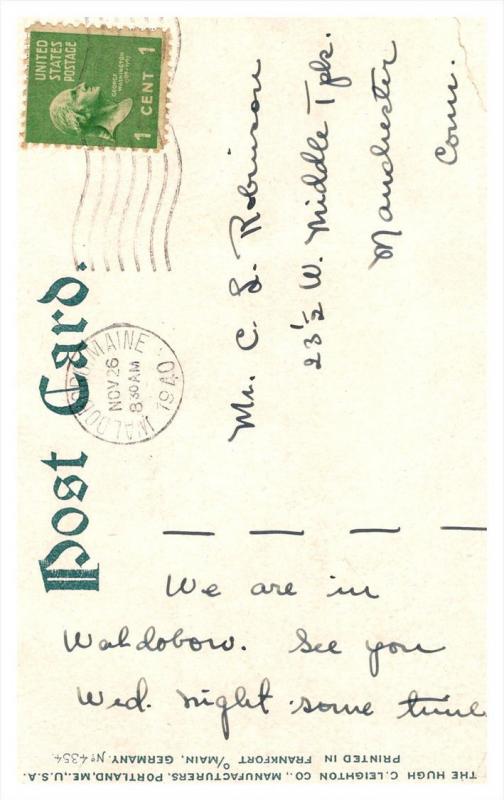 UNITED
STATES
POSTAGE
GEORGE
WASHINGTON
1 CENT 1
Post Card.
MAINE
NOV 26
8 30 AM
1940
Mr. C. L. Robinson
23 1/2 W. Middle Tpk.
Manchester
Conn.
We are in
Waldobow. See you
Wed. night some time
THE HUGH C. LEIGHTON CO., MANUFACTURERS, PORTLAND, ME., U.S.A.
PRINTED IN FRANKFORT O/MAIN, GERMANY. No 4354